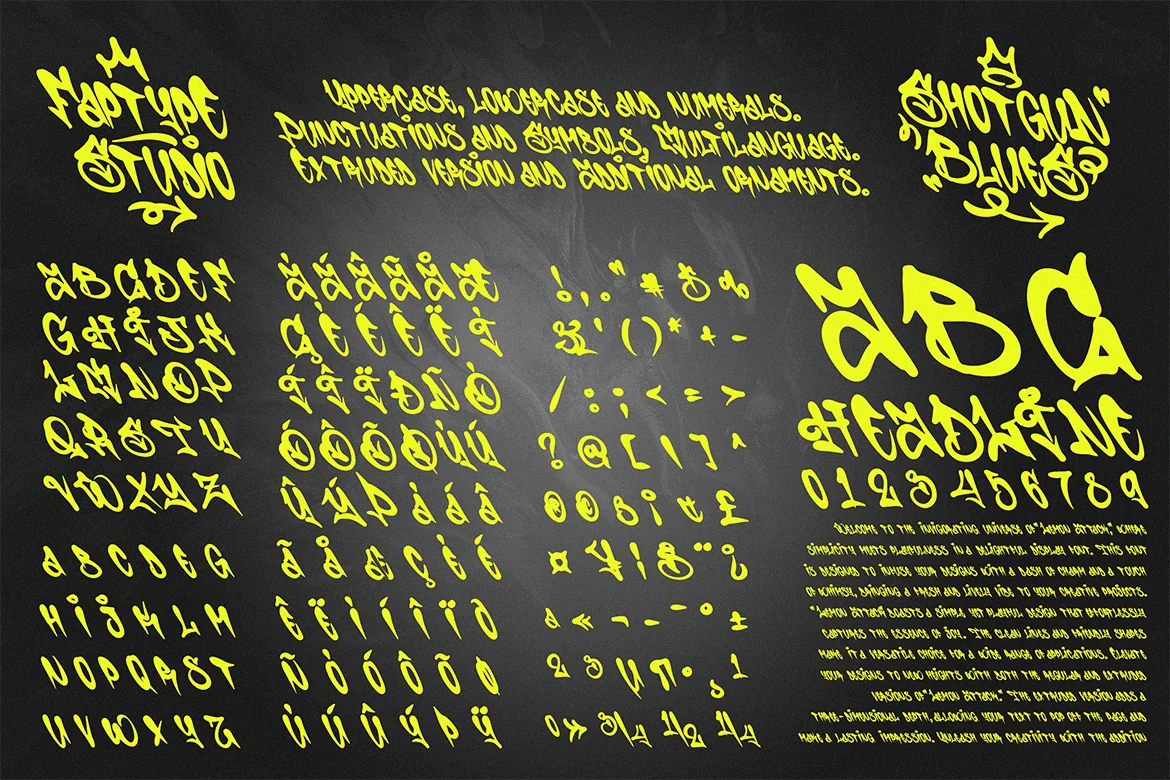 FAPTYPE
STUDIO
UPPERCASE, LOWERCASE AND NUMERALS.
PUNCTUATIONS AND SYMBOLS, MULTILANGUAGE.
EXTRUDED VERSION AND ADDITIONAL ORNAMENTS.
"SHOTGUN
BLUES"
A B C D E F
G H I J K
L M N O P
Q R S T U
V W X Y Z
a b c d e g
h i j k l m
n o p q r s t
u v w x y z
À Á Â Ã Å Æ
Ç È É Ê Ë Ì
Í Î Ï Ð Ñ Ò
Ó Ô Õ Ö Ù Ú
Û Ý Þ à á â
ã å æ ç è é
ê ë ì í î ï ð
ñ ò ó ô õ ø
ù ú û ý þ ÿ
! , . " # $ %
& ' ( ) * + -
/ : ; < = >
? @ [ \ ] ^
£
¤ ¥ ¦ § ¨ ¿
ª « ¬ - ¯ ° ±
² ³ µ ¶ · ¸ ¹
º » ¾ ½ ¼
A B C
HEADLINE
0 1 2 3 4 5 6 7 8 9
WELCOME TO THE INVIGORATING UNIVERSE OF "LEMON ATTACK," WHERE
SIMPLICITY MEETS PLAYFULNESS IN A DELIGHTFUL DISPLAY FONT. THIS FONT
IS DESIGNED TO INFUSE YOUR DESIGNS WITH A DASH OF CHARM AND A TOUCH
OF WHIMSY, BRINGING A FRESH AND LIVELY VIBE TO YOUR CREATIVE PROJECTS.
"LEMON ATTACK" BOASTS A SIMPLE YET PLAYFUL DESIGN THAT EFFORTLESSLY
CAPTURES THE ESSENCE OF JOY. THE CLEAN LINES AND FRIENDLY SHAPES
MAKE IT A VERSATILE CHOICE FOR A WIDE RANGE OF APPLICATIONS. ELEVATE
YOUR DESIGNS TO NEW HEIGHTS WITH BOTH THE REGULAR AND EXTRUDED
VERSIONS OF "LEMON ATTACK." THE EXTRUDED VERSION ADDS A
THREE-DIMENSIONAL DEPTH, ALLOWING YOUR TEXT TO POP OFF THE PAGE AND
MAKE A LASTING IMPRESSION. UNLEASH YOUR CREATIVITY WITH THE ADDITION